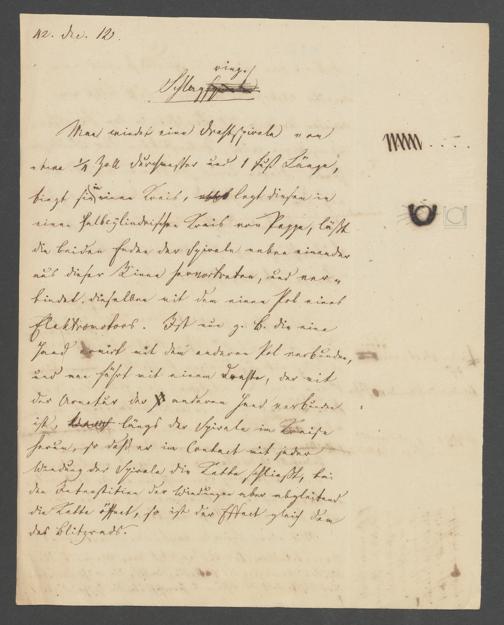 42. Dec. 12.
ringe
Schlag
Man windet eine Drahtspirale von
etwa 1/4 Zoll Durchmesser und 1 Fuß Länge,
biegt sie in einen Kreis, legt diesen in
einen halbcylindrischen Kreis von Pappe, läßt
die beiden Enden der Spirale neben einander
aus dieser Rinne hervortreten, und ver-
bindet dieselben mit dem einen Pol eines
Elektromotors. Ist nun z. B. die eine
Hand mit dem anderen Pol verbunden,
und man fährt mit einem Drahte, der mit
der Armatur der anderen Hand verbunden
ist, längs der Spirale im Kreise
herum, so daß er im Contact mit jeder
Windung der Spirale die Kette schließt, bei
den Interstitien der Windungen aber abgleitend
die Kette öffnet, so ist der Effect gleich dem
des Blitzrads.